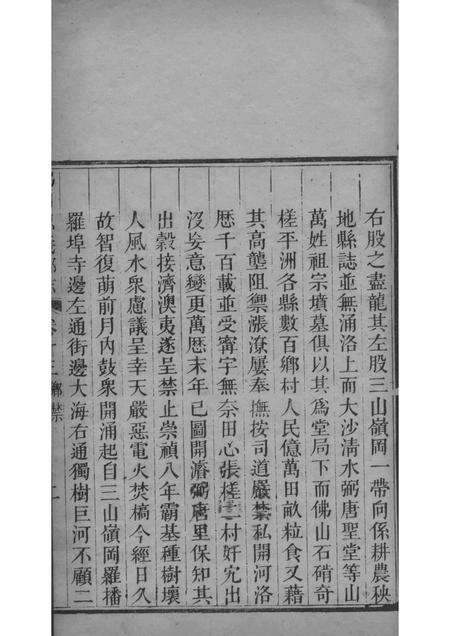 右股之盡龍其左股三山嶺岡一帶向係耕農秧
地縣誌並無涌洛上而大沙清水弼唐聖堂等山
萬姓祖宗墳墓俱以其為堂局下而佛山石硝奇
槎平洲各縣數百鄉村人民億萬田畝粒食又藉
其高壟阻禦漲潦屢奉撫按司道嚴禁私開河洛
歷千百載並受甯宇無奈田心張槎二村奸宄出
沒妄意變更萬曆末年已圖開濬弼唐里保知其
出穀接濟澳夷遂呈禁止崇禎八年霸基種樹壞
人風水眾慮議呈幸天嚴惡電火焚槁今經日久
故智復萌前月內鼓眾開涌起自三山嶺岡羅播
羅埠寺邊左通街邊大海右通獨樹巨河不顧二
鄉禁
二